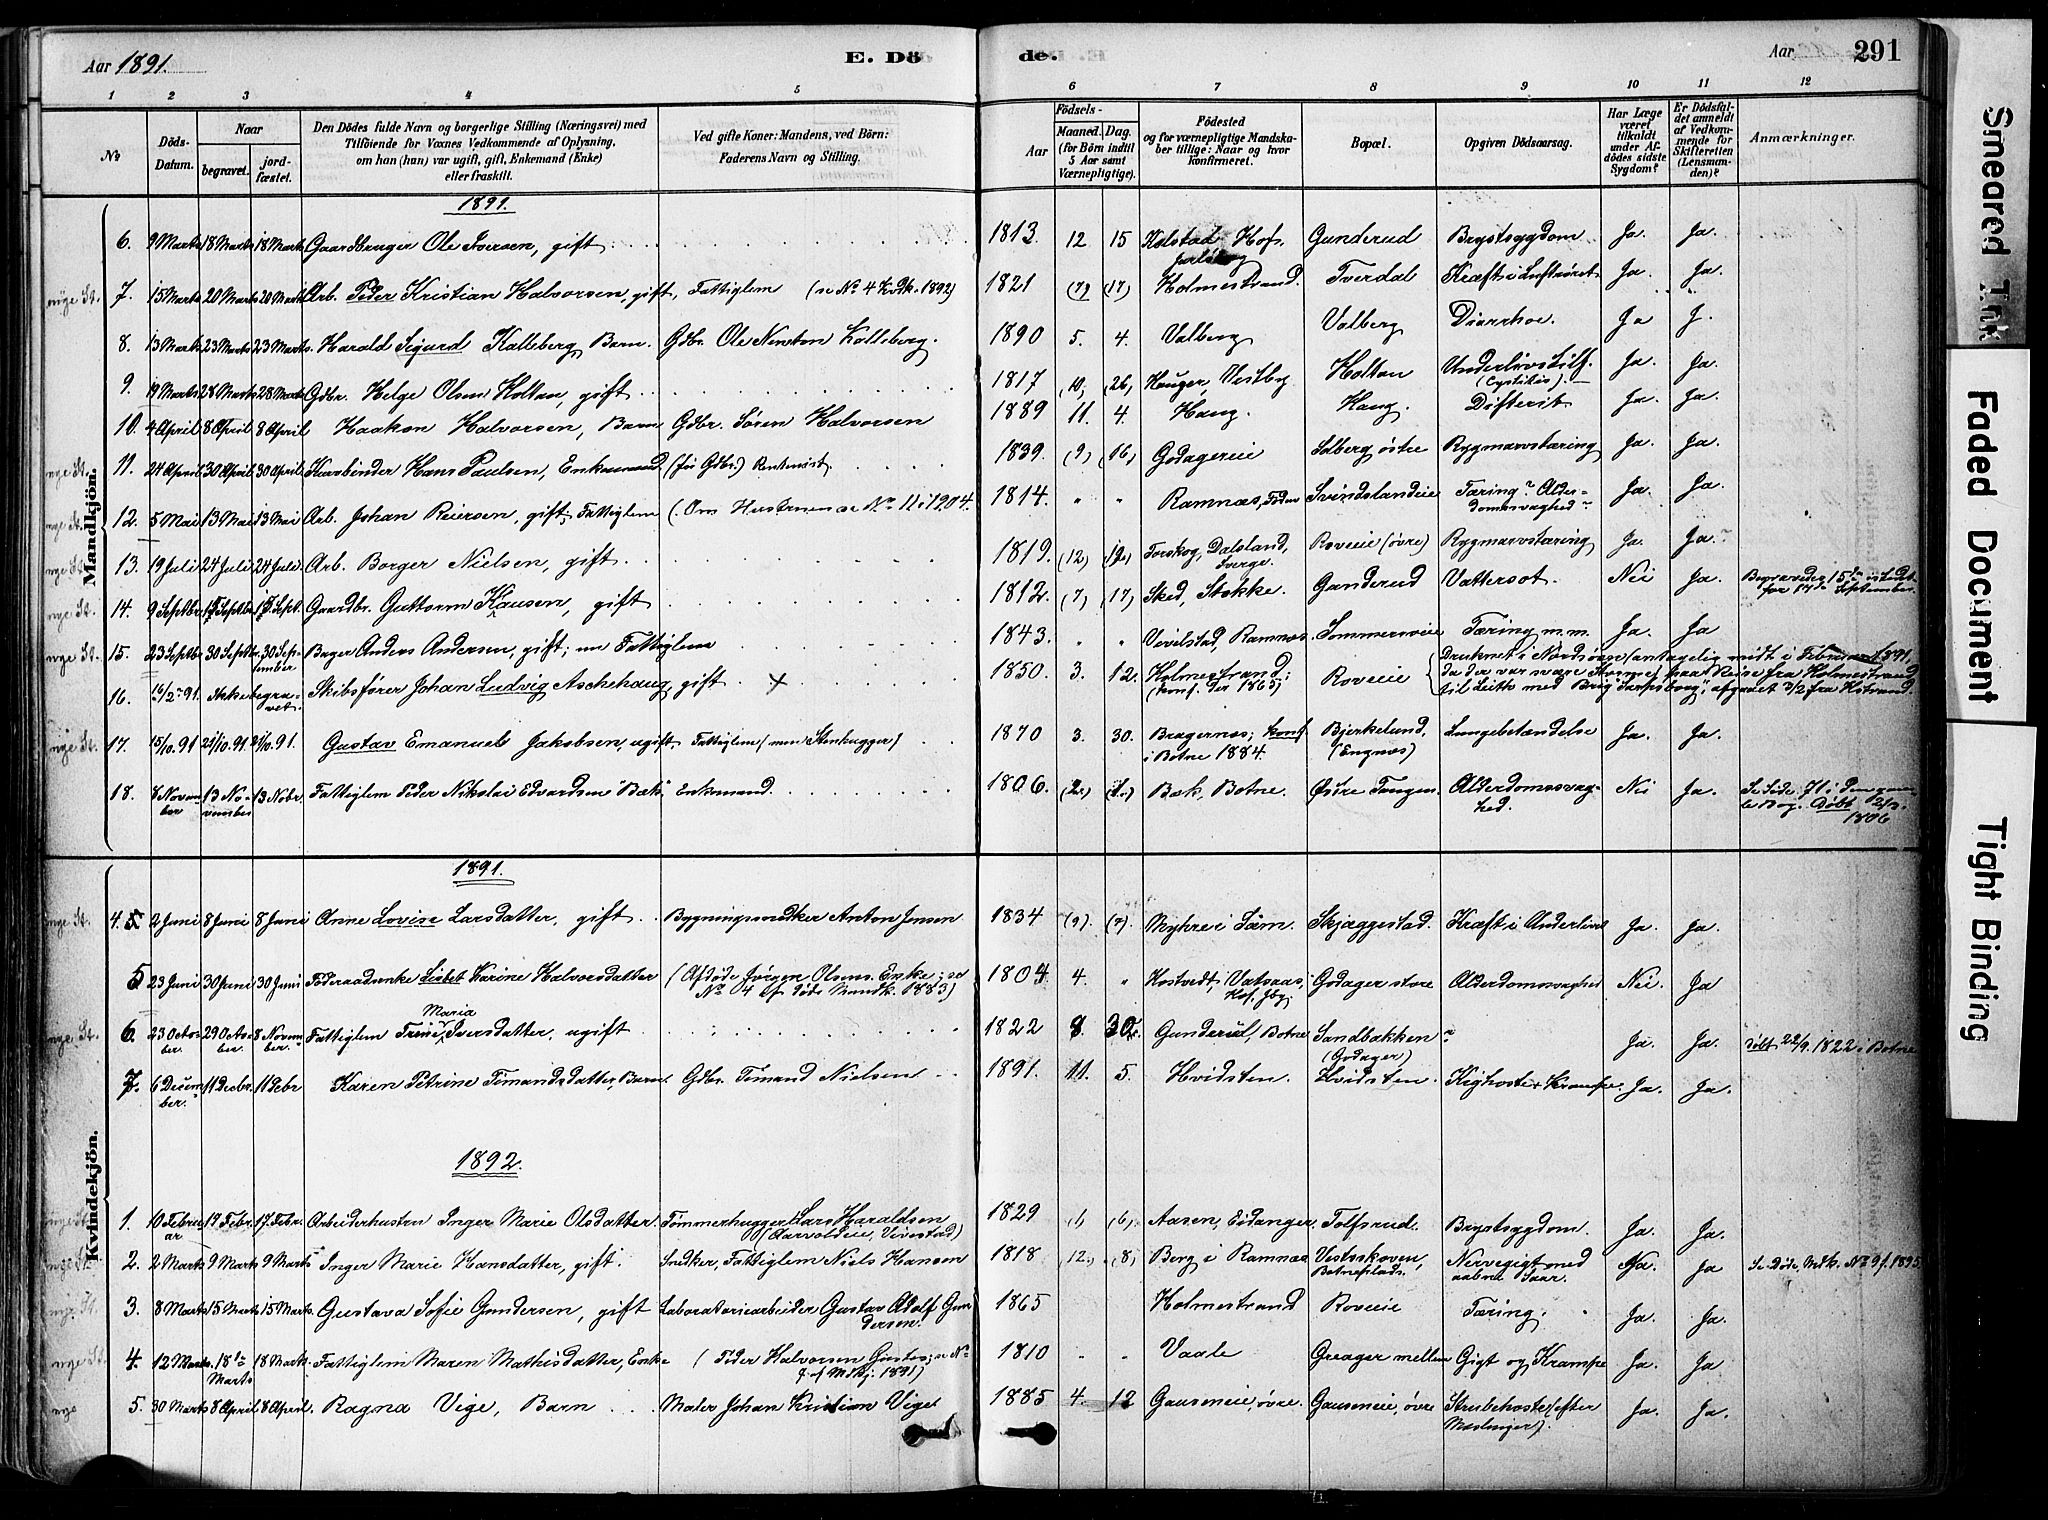 Aar 1891. E. Dö
de. Aar 291
1 2 3 4 5 6 7 8 9 10 11 12
No Döds-Datum. Naar begravet. jordfæstet. Den Dödes fulde Navn og borgerlige Stilling (Næringsvei) med Tilföiende for Voxnes Vedkommende af Oplysning, om han (hun) var ugift, gift, Enkemand (Enke) eller fraskilt. Ved gifte Koner: Mandens, ved Börn: Faderens Navn og Stilling. Aar Födsels- Maaned. Dag. (for Börn indtil 5 Aar samt Værnepligtige). Födested og for værnepligtige Mandskaber tillige: Naar og hvor Konfirmeret. Bopæl. Opgiven Dödsaarsag. Har Læge været tilkaldt under Afdödes sidste Sygdom? Er Dödsfaldet anmeldt af Vedkommende for Skifteretten (Lensmanden)? Anmærkninger.
Mandkjön.
1891.
6. 9 Marts 18 Marts 18 Marts Gaardbruger Ole Iversen, gift 1813. 12 15 Kolstad Hof, Jarlsberg Gunderud Brystsygdom Ja. Ja.
nye St. 7. 15 Marts 20 Marts 20 Marts Arb. Peder Kristian Halvorsen, gift, Fattiglem (se No 4 Kvdk. 1892) 1821 (7) (17) Holmestrand. Tverdal Kræft i Luftröret Ja. Ja.
8. 13 Marts 23 Marts 23 Marts. Harald Sigurd Kolleberg, Barn. Gdbr. Ole Newton Kolleberg. 1890 5. 4. Valberg Valberg Diarrhoe. Ja J.
9. 19 Marts 28 Marts 28 Marts Gdbr. Helge Olsen Holtan, gift 1817 (10) (26) Hauger, Vestby Holtan Underlivslilf. (Cystitis). Ja. Ja.
10. 4 April 8 April 8 April Haakon Halvorsen, Barn Gdbr. Søren Halvorsen 1889 11. 4. Haug. Haug. Difterit Ja. Ja.
nye St. 11. 24 April 30 April 30 April Hans Paulsen, Enkemand (før Gdbr.) Rentenist 1839. (9) (16) Godagereie Solberg østre Rygmarvstæring Ja. Ja.
nye St. 12. 5 Mai 13 Mai 13 Mai Arb. Johan Reiersen, gift, Fattiglem (Om Hustruen se No 11 i 1904. 1814. " " Ramnæs, Svindslandeie Tæring? Alderdomssvaghed? Ja. Ja.
nye St. 13. 19 Juli 24 Juli 24 Juli. Arb. Borger Nielsen, gift. 1819. (12) (12) Torskog, Dalsland, Sverge. Roveeie (øvre) Rygmarvstæring Ja. Ja.
nye St. 14. 9 Septbr. 17 Septbr. 17 Sept. Gaardbr. Guttorm Klausen, gift 1812. (7) (17) Sked, Stokke. Gunderud Vattersot. Nei Ja. Begravedes 15de istedetfor 17de September.
nye St. 15. 23 Septbr 30 Septbr 30 September Bager Anders Andersen, gift; nu Fattiglem 1843. " " Vivelstad, Ramnæs Sommerseeie Tæring m.m. Ja. Ja
16. 16/2 91. Ikke begravet. Skibsfører Johan Ludvig Aschehaug, gift X 1850 3. 12. Holmestrand; (konf. der 1865) Roveeie Druknet i Nordsøen (antagelig midt i Februar 1891, da der var svære Storme) paa Reise fra Holmestrand til Leith med Brig "Sarpsborg", afgaaet 3/2 fra Hstrand.
nye St. 17. 15/10. 91 21/10. 91. 21/10. 91. Gustav Emanuel Jakobsen, ugift Fattiglem (men Stenhugger) 1870 3. 30. Bragernæs; konf. i Botne 1884. Bjerkelund, (Engnæs) Lungebetændelse Ja. Ja.
18. 8 November 13 November 13 Nobr. Fattiglem Peder Nikolai Edvardsen Bæk, Enkemand. 1806. (2) Bæk, Botne. Østre Tangen. Alderdomssvaghed. Nei Ja. Se Side 71 i Den gamle Bog. Døbt 2/3. 1806
Kvindekjön.
1891.
nye St. 4. 5 2 Juni 8 Juni 8 Juni Anne Lovise Larsdatter, gift Bygningssnedker Anton Jensen 1834 (9) (7). Myhre i Sæm. Skjæggestad. Kræft i Underlivet Ja. Ja.
5 23 Juni 30 Juni 30 Juni Føderaadsenke Lisbet Karine Halvorsdatter (Afdøde Jørgen Olsens Enke; se No 4 af døde Mandk. 1883) 1804 4. " Kostvedt, Vatsaas, Hof, Jbg. Godager store Alderdomssvaghed Nei. Ja
nye St. 6. 23 October. 29 October. 8 November. Fattiglem Trine Maria Iversdatter, ugift 1822 8. 30. Gunderud, Botne Sandbakken (Godager) " Ja. Ja. døbt 22/9. 1822 i Botne
7. 6 December. 11 Decbr. 11 Debr Karen Petrine Timandsdatter, Barn. Gdbr. Timand Nielsen 1891. 11. 5. Hvidsten. Hvidsten. Kighoste + Krampe. Ja. Ja.
1892.
nye St. 1. 10 Februar 17 Febr. 17 Febr. Arbeiderhustru Inger Marie Olsdatter. Tømmerhugger Lars Haraldsen (Aarvoldeie, Vivestad) 1829 (1) (6) Aasen, Eidanger, Tolfsrud. Brystsygdom. Ja. Ja.
nye St. 2. 2 Marts 9 Marts 9 Marts Inger Marie Hansdatter, gift. Snedker, Fattiglem Niels Hansen 1818 (12.) (8) Berg i Ramnæs Vestskoven, Botneplads. Nervegigt med aabne Saar. Ja. Ja Se Døde Mdk. No 9 f. 1895
nye St. 3. 8 Marts 15 Marts 15 Marts. Gustava Sofie Gundersen, gift Laboratoriearbeider Gustav Adolf Gundersen. 1865 Holmestrand Roveeie Tæring. Ja. Ja.
nye St. 4. 12 Marts. 18de Marts 18 Mark. Fattiglem Maren Mathisdatter, Enke (Peder Halvorsen se No 7 af Mdkj. 1891) 1810 " " Vaale Greager mellem Gigt og Krampe Ja. Ja
nye 5. 30 Marts 8 April 8 April. Ragna Vige, Barn Maler Johan Kristian Viget 1885 4. 12 Gauseneie, øvre. Gauseneie, øvre Strubehoste (efter Meslinger). Ja. Ja.
Smeared Ink
Faded Document
Tight Binding